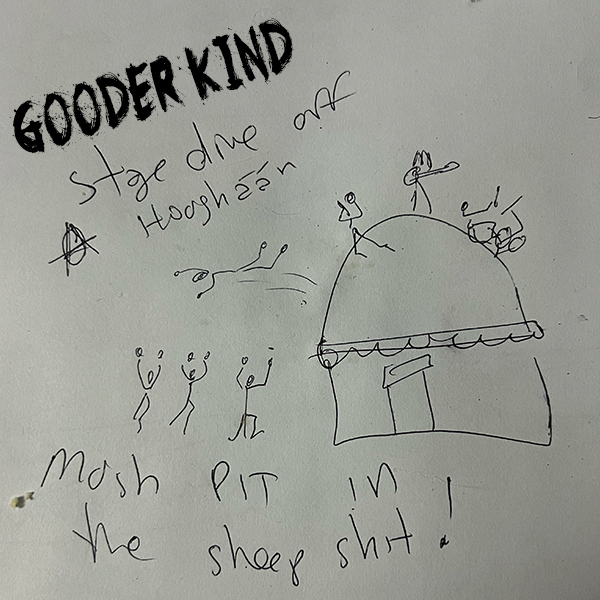 GOODER KIND
Stage dive off
Hoogháán
Mosh PIT in
the sheep shit!